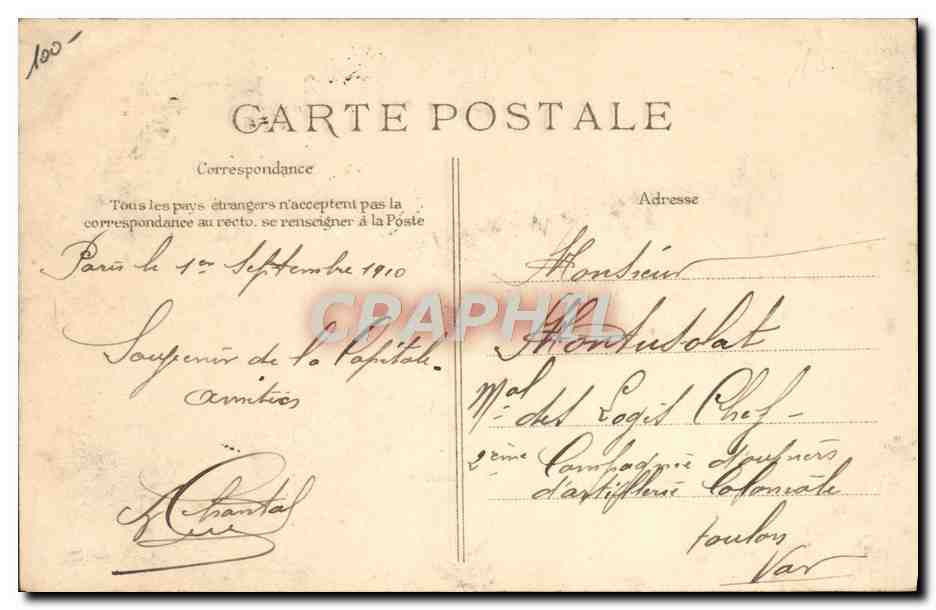 100-
CARTE POSTALE
Correspondance
Tous les pays étrangers n'acceptent pas la
correspondance au recto. se renseigner à la Poste
Paris le 1er Septembre 1910
Souvenir de la Capitale.
amitiés
Chantal
Adresse
Monsieur
Montusolat
Mal des Logis Chef-
2ème Compagnie d'ouvriers
d'artillerie Coloniale
toulon
Var
CRAPHIL